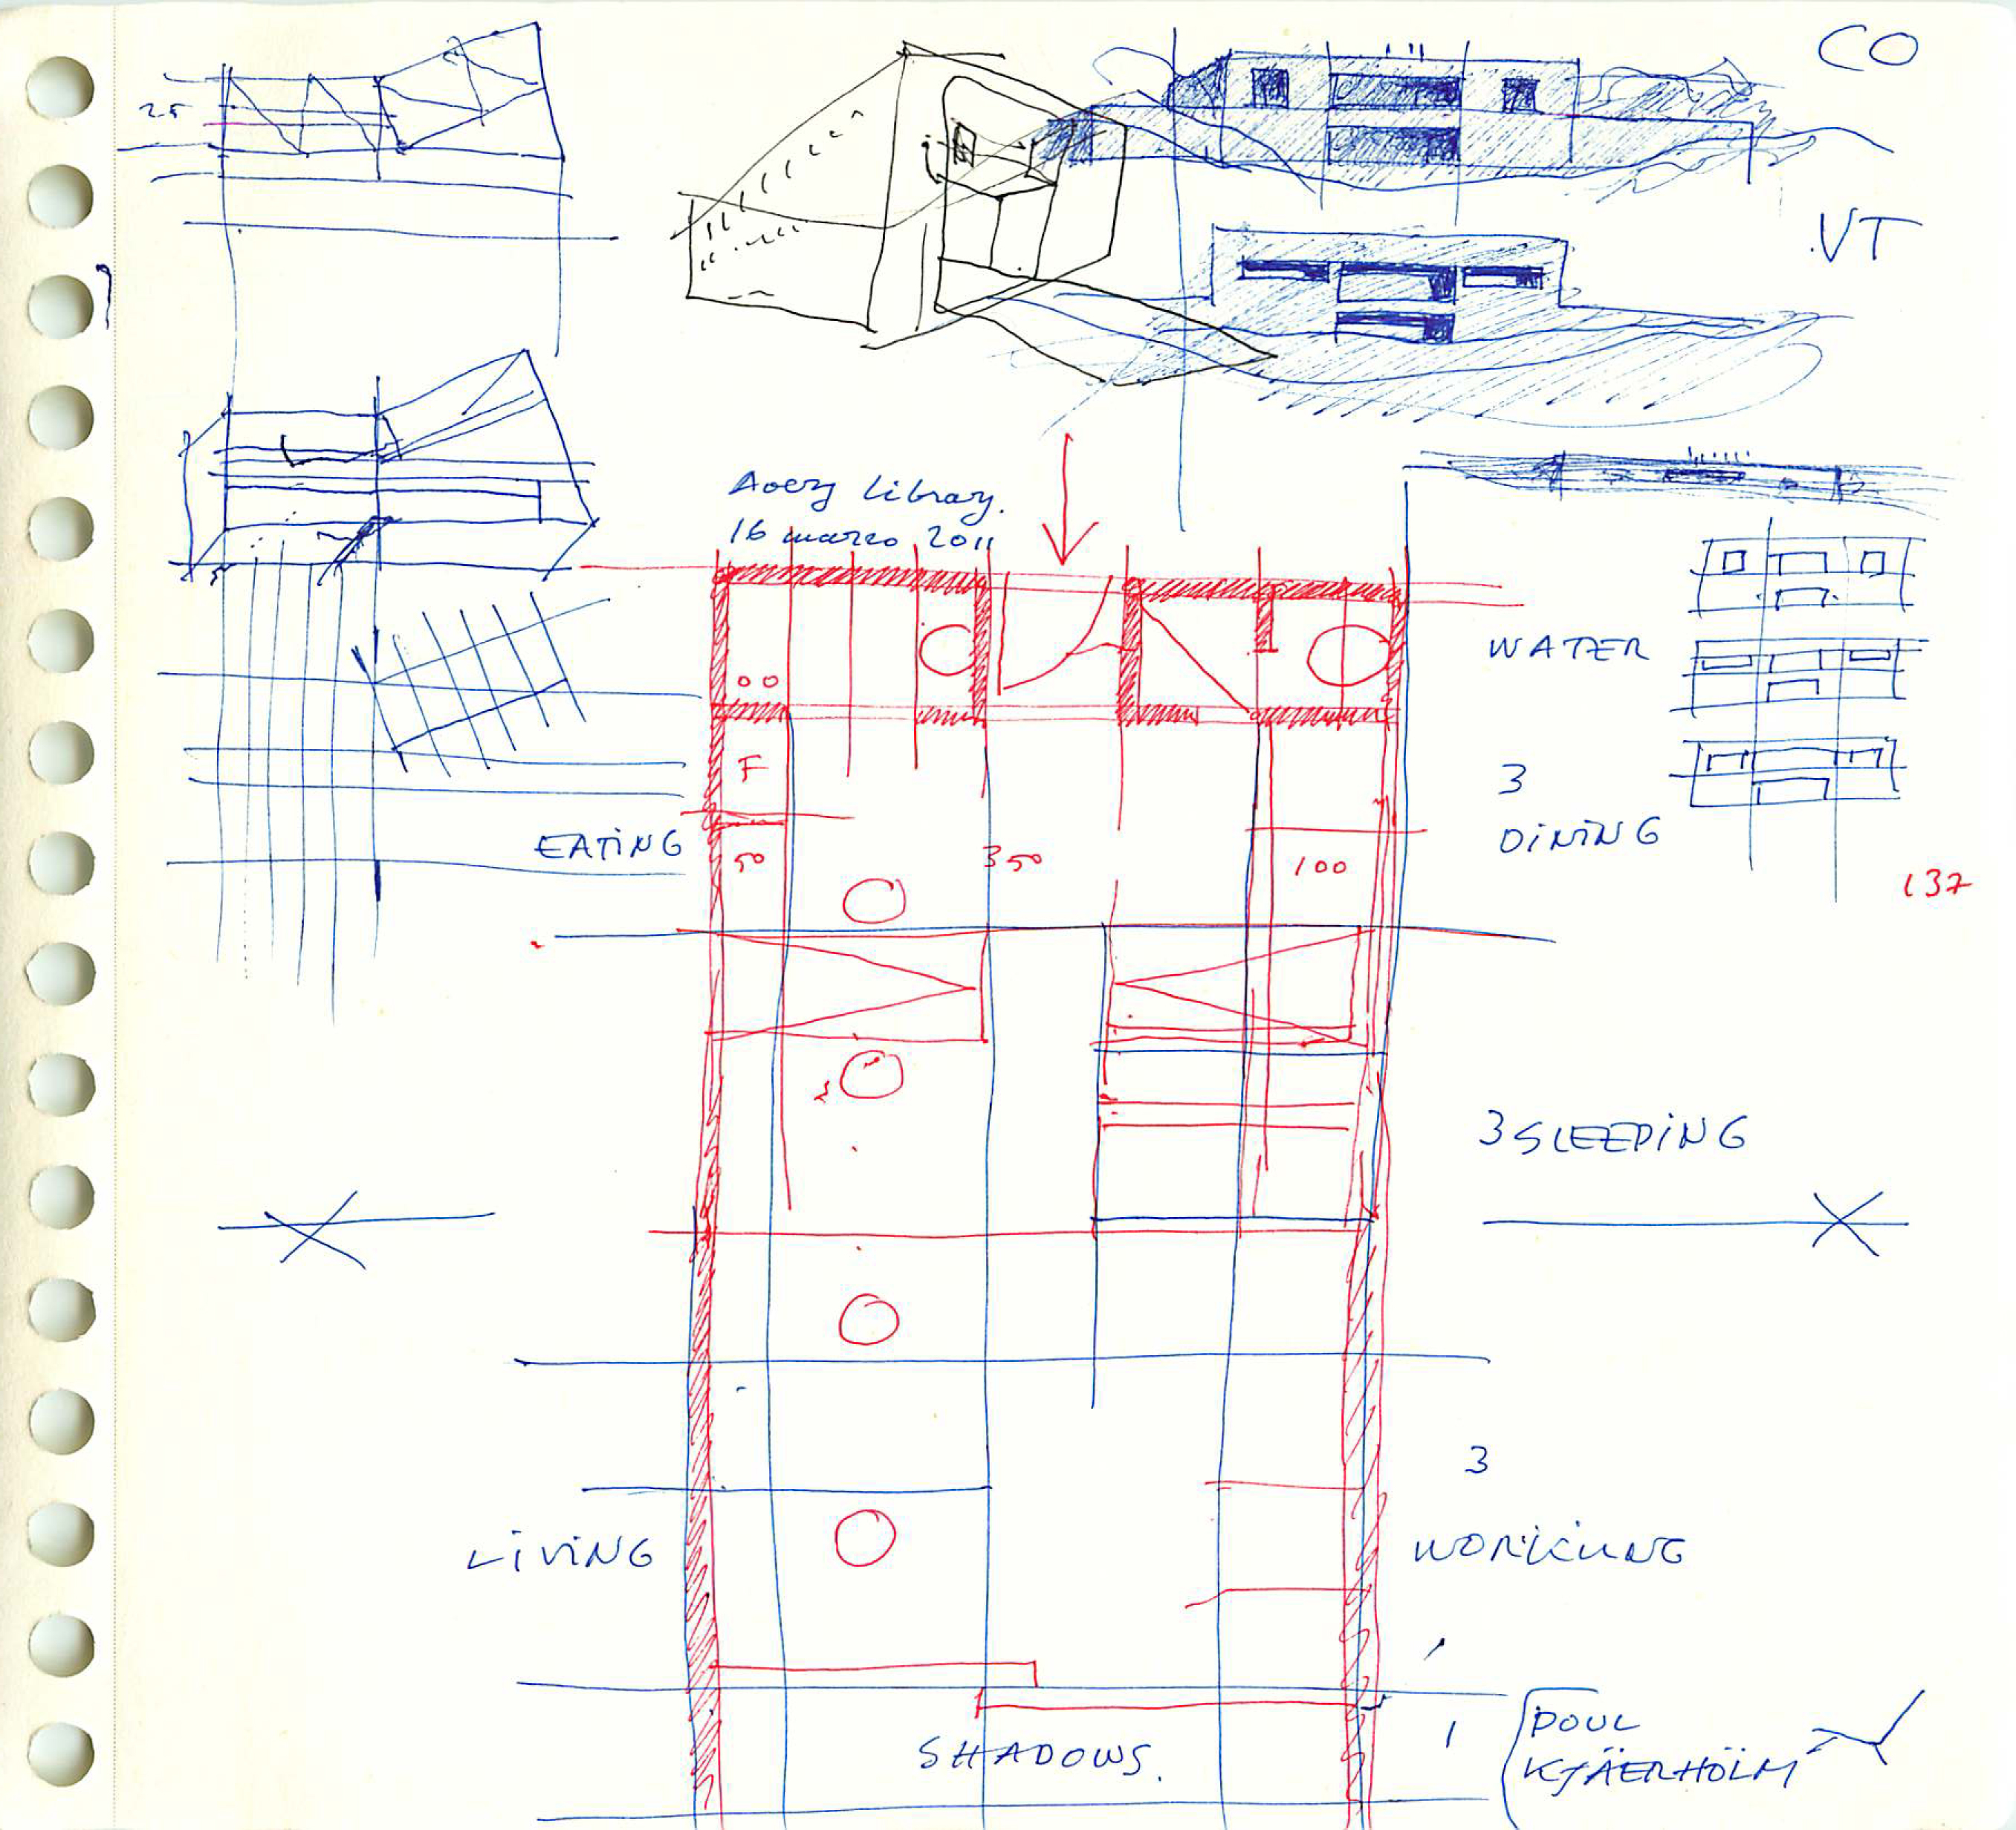 CO
2.5
VT
Avery Library.
16 marzo 2011
WATER
F
3
EATING
DINING
50
350
100
137
3 SLEEPING
3
LIVING
WORKING
SHADOWS.
1
POUL
KJÄERHÖLM